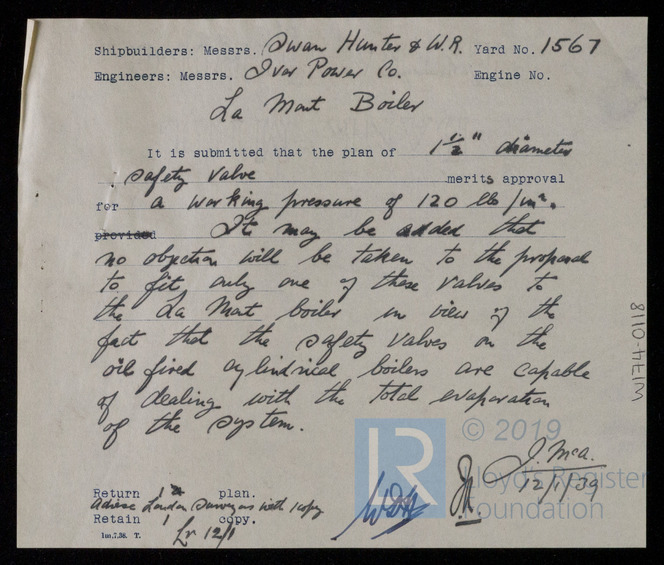 Shipbuilders: Messrs. Swan Hunter & W.R. Yard No. 1567
Engineers: Messrs. Iver Power Co. Engine No.
La Mont Boiler
It is submitted that the plan of 1½" diameter
safety valve merits approval
for a working pressure of 120 lbs/in².
provided It may be added that
no objection will be taken to the proposal
to fit only one of these valves to
the La Mont boiler in view of the
fact that the safety valves on the
oil fired cylindrical boilers are capable
of dealing with the total evaporation
of the system.
J. McA.
12/1/39
Return 1 plan.
Advise London Surveyors with 1 copy
Retain 1 copy.
Lr 12/1
1m.7.38. T.
W174-0118
LR
© 2019
Lloyd's Register
Foundation